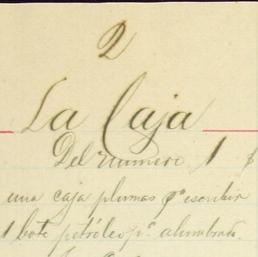 2
La Caja
Del numero 1 $
una caja plumas pª escribir
1 bote petróleo pª alumbrado